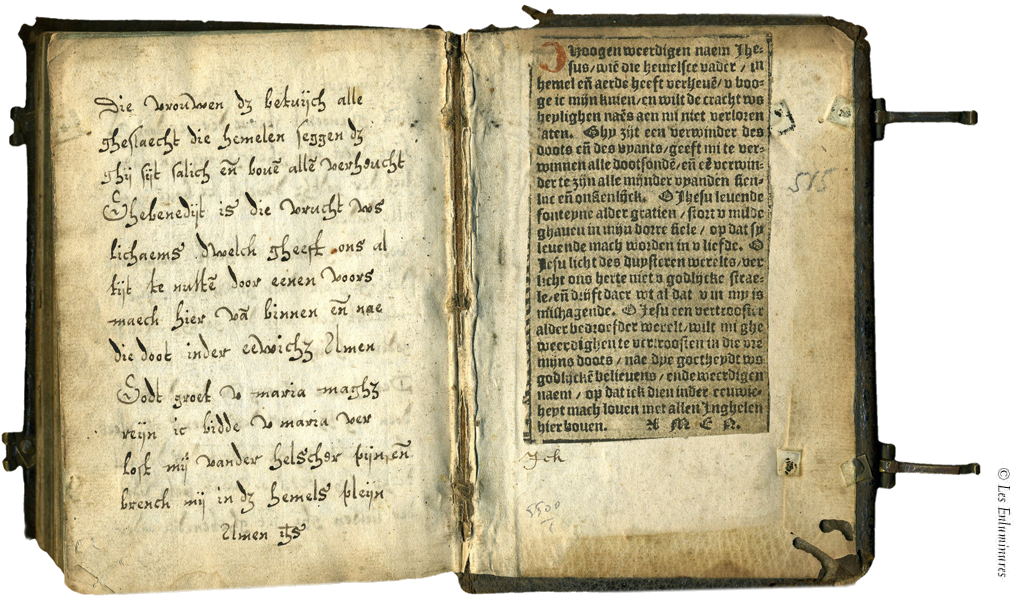 Die vrouwen dz betuijch alle
gheslaecht die hemelen seggen dz
ghij sijt salich eñ bovē allē verheucht
Ghebenedijt is die vrucht ws
lichaems dwelck gheeft ons al
tijt te nuttē door eenen voors
maeck hier vā binnen eñ nae
die doot inder eewichz Amen
Godt groet v maria maghz
reijn ic bidde v maria ver
lost mij vander helscher pijn eñ
brench mij in dz hemels pleijn
Amen ihs
O Hoogen weerdigen naem Ihe-
sus/wiē die hemelsce vader/in
hemel eñ aerde heeft verhevē/v boo-
ge ic mijn knien/en wilt de cracht ws
heylighen naēs aen mi niet verloren
laten. Ghy zijt een verwinder des
doots eñ des vyants/geeft mi te ver-
winnen alle dootsondē/eñ eē verwin-
der te zijn alle mijnder vyanden sien-
lijc eñ onsienlijck. O Jhesu levende
fonteyne alder gratien/stort v milde
ghaven in mijn dorre siele/op dat sy
levende mach worden in v liefde. O
Jesu licht des duysteren werelts/ver
licht ons herte met v godlijcke strae-
le/eñ drijft daer wt al dat v in my is
mishagende. O Jesu een vertrooster
alder bedroefder werelt/wilt mi ghe
weerdighen te vertroosten in die vre
mijns doots/nae dye goetheydt ws
godlijckē believens/ende weerdigen
naem/op dat ick dien inder eeuwic-
heyt mach loven met allen Inghelen
hier boven. AMEN.
Ick
515
5500
© Les Enluminures